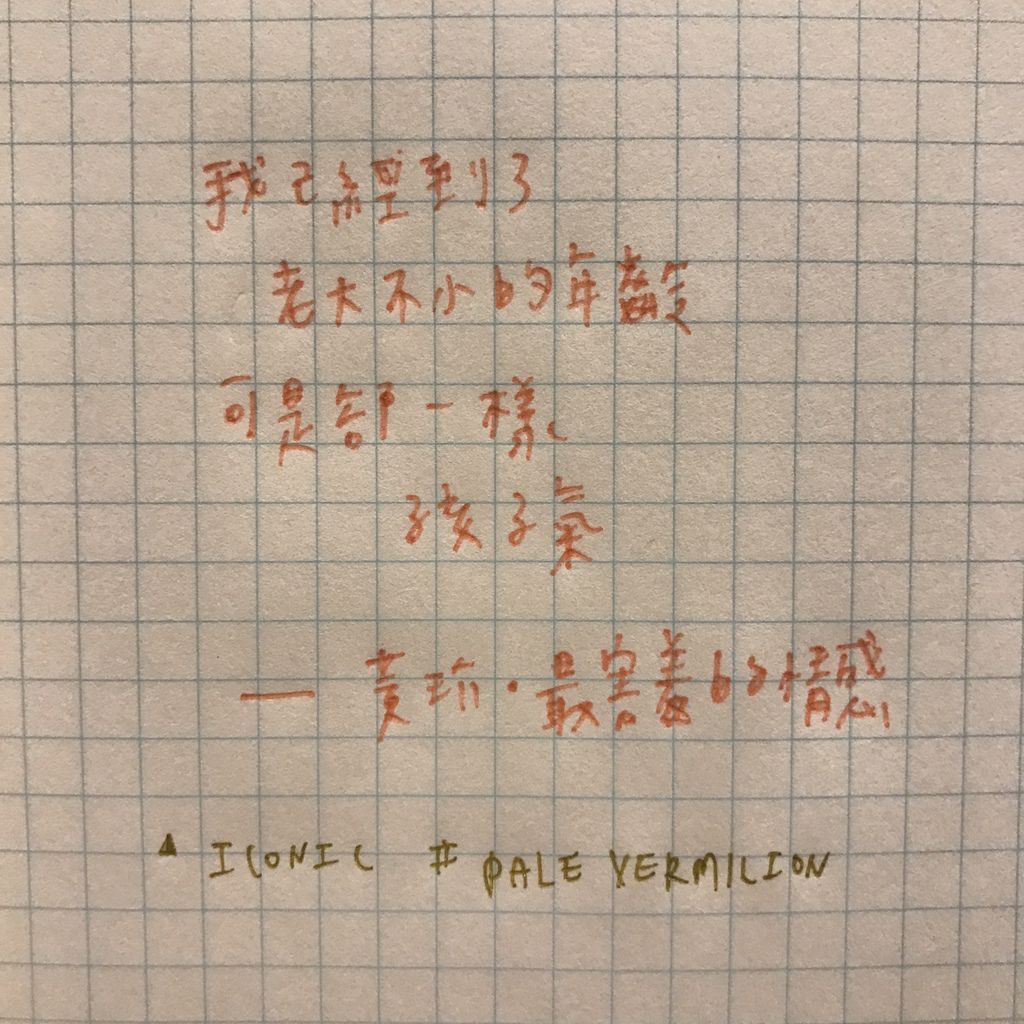 我已經到了
老大不小的年齡
可是卻一樣
孩子氣
— 黃玠·最害羞的情感
▲ ICONIC # PALE VERMILION